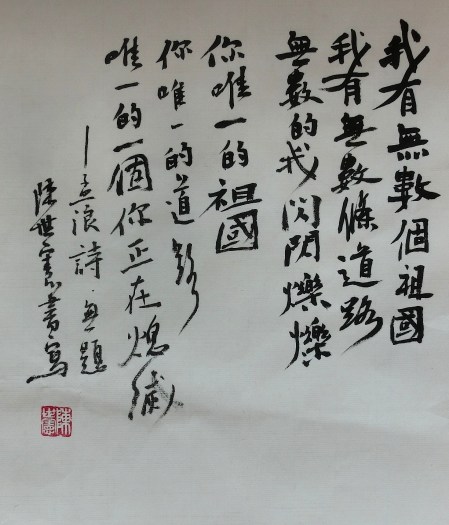 我有無數個祖國
我有無數條道路
無數的我閃閃爍爍
你唯一的祖國
你唯一的道路
唯一的一個你正在熄滅
—孟浪詩·無題
陳世憲書寫
陳世憲